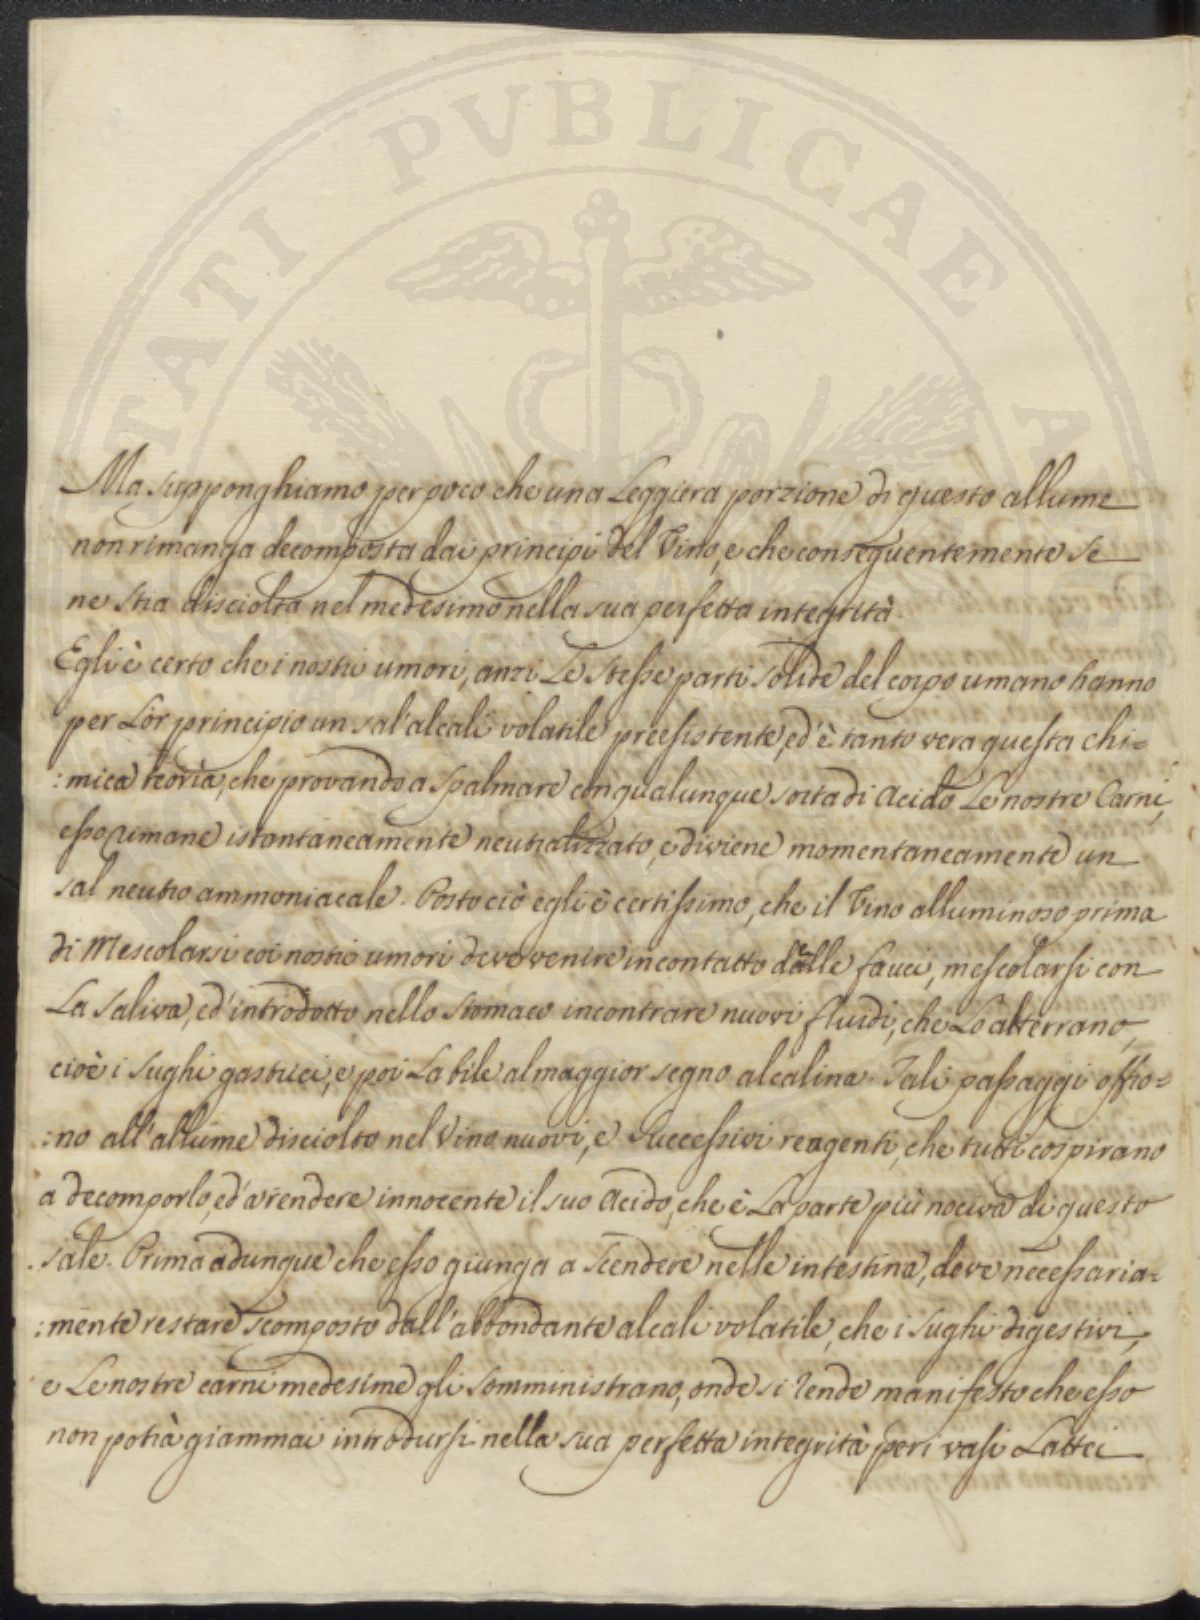 PROSPERITATI PVBLICAE AVGENDAE
Ma supponghiamo per poco che una Leggiera porzione di questo allume
non rimanga decomposta dai principj del Vino, e che conseguentemente se
ne stia disciolta nel medesimo nella sua perfetta integrità.
Egli è certo che i nostri umori, anzi Le stesse parti solide del corpo umano hanno
per Lor principio un sal'alcali volatile preesistente, ed'è tanto vera questa chi=
:mica teoria, che provando a spalmare con qualunque sorta di Acido Le nostre Carni,
esso umane istantaneamente neutralizzato, e diviene momentaneamente un
sal neutro ammoniacale. Posto ciò egli è certissimo, che il Vino alluminoso prima
di Mescolarsi coi nostri umori deve venire in contatto delle fauci, mescolarsi con
La saliva, ed'introdotto nello stomaco incontrare nuovi fluidi, che Lo alterrano,
cioè i sughi gastrici, e poi La bile al maggior segno alcalina. Tali passaggi offro=
:no all'allume disciolto nel Vino nuovi, e successivi reagenti, che tutti cospirano
a decomporlo, ed'a rendere innocente il suo Acido, che è La parte più nociva di questo
sale. Prima adunque che esso giunga a scendere nelle intestina, deve necessaria=
:mente restare scomposto dall'abbondante alcali volatile, che i sughi digestivi,
e Le nostre carni medesime gli somministrano, onde si rende manifesto che esso
non potrà giammai introdursi nella sua perfetta integrità per i vasi Lattei